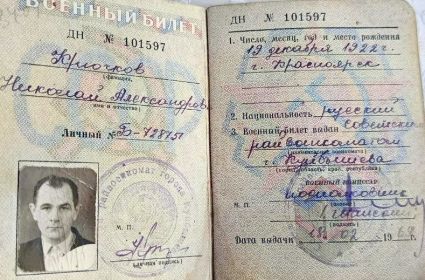 ВОЕННЫЙ БИЛЕТ
ДН № 101597
Крючков
(фамилия)
Николай Александров
имя и отчество
Личный №
М. П.
(личная подпись)
ДН № 101597
1. Число, месяц, год и место рождения
19 декабря 1922 г.
г. Красноярск
2. Национальность русский
3. Военный билет выдан Советским
райвоенкоматом
г. Куйбышева
ВОЕННЫЙ КОМИССАР
подполковник
М. П.
(подпись)
Дата выдачи 02 19